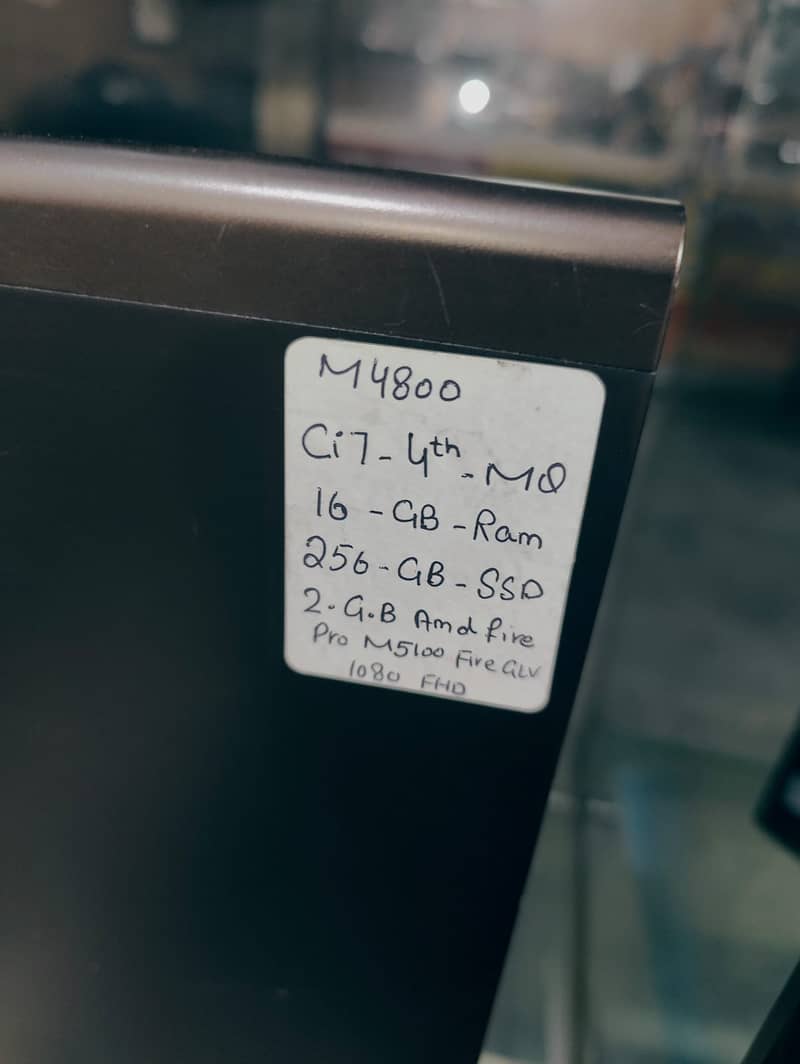 M4800
Ci7-4th-MQ
16-GB-Ram
256-GB-SSD
2.G.B Amd fire
Pro M5100 Fire GLV
1080 FHD